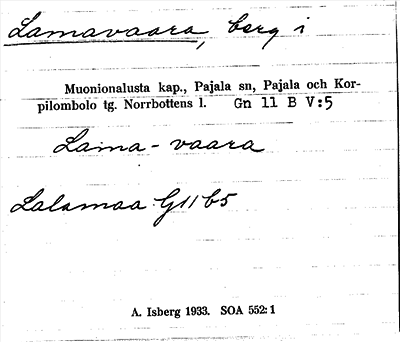 Lamavaara, berg i
Muonionalusta kap., Pajala sn, Pajala och Kor-
pilombolo tg. Norrbottens l. Gn 11 B V:5
Laina-vaara
Lalamaa G11b5
A. Isberg 1933. SOA 552:1